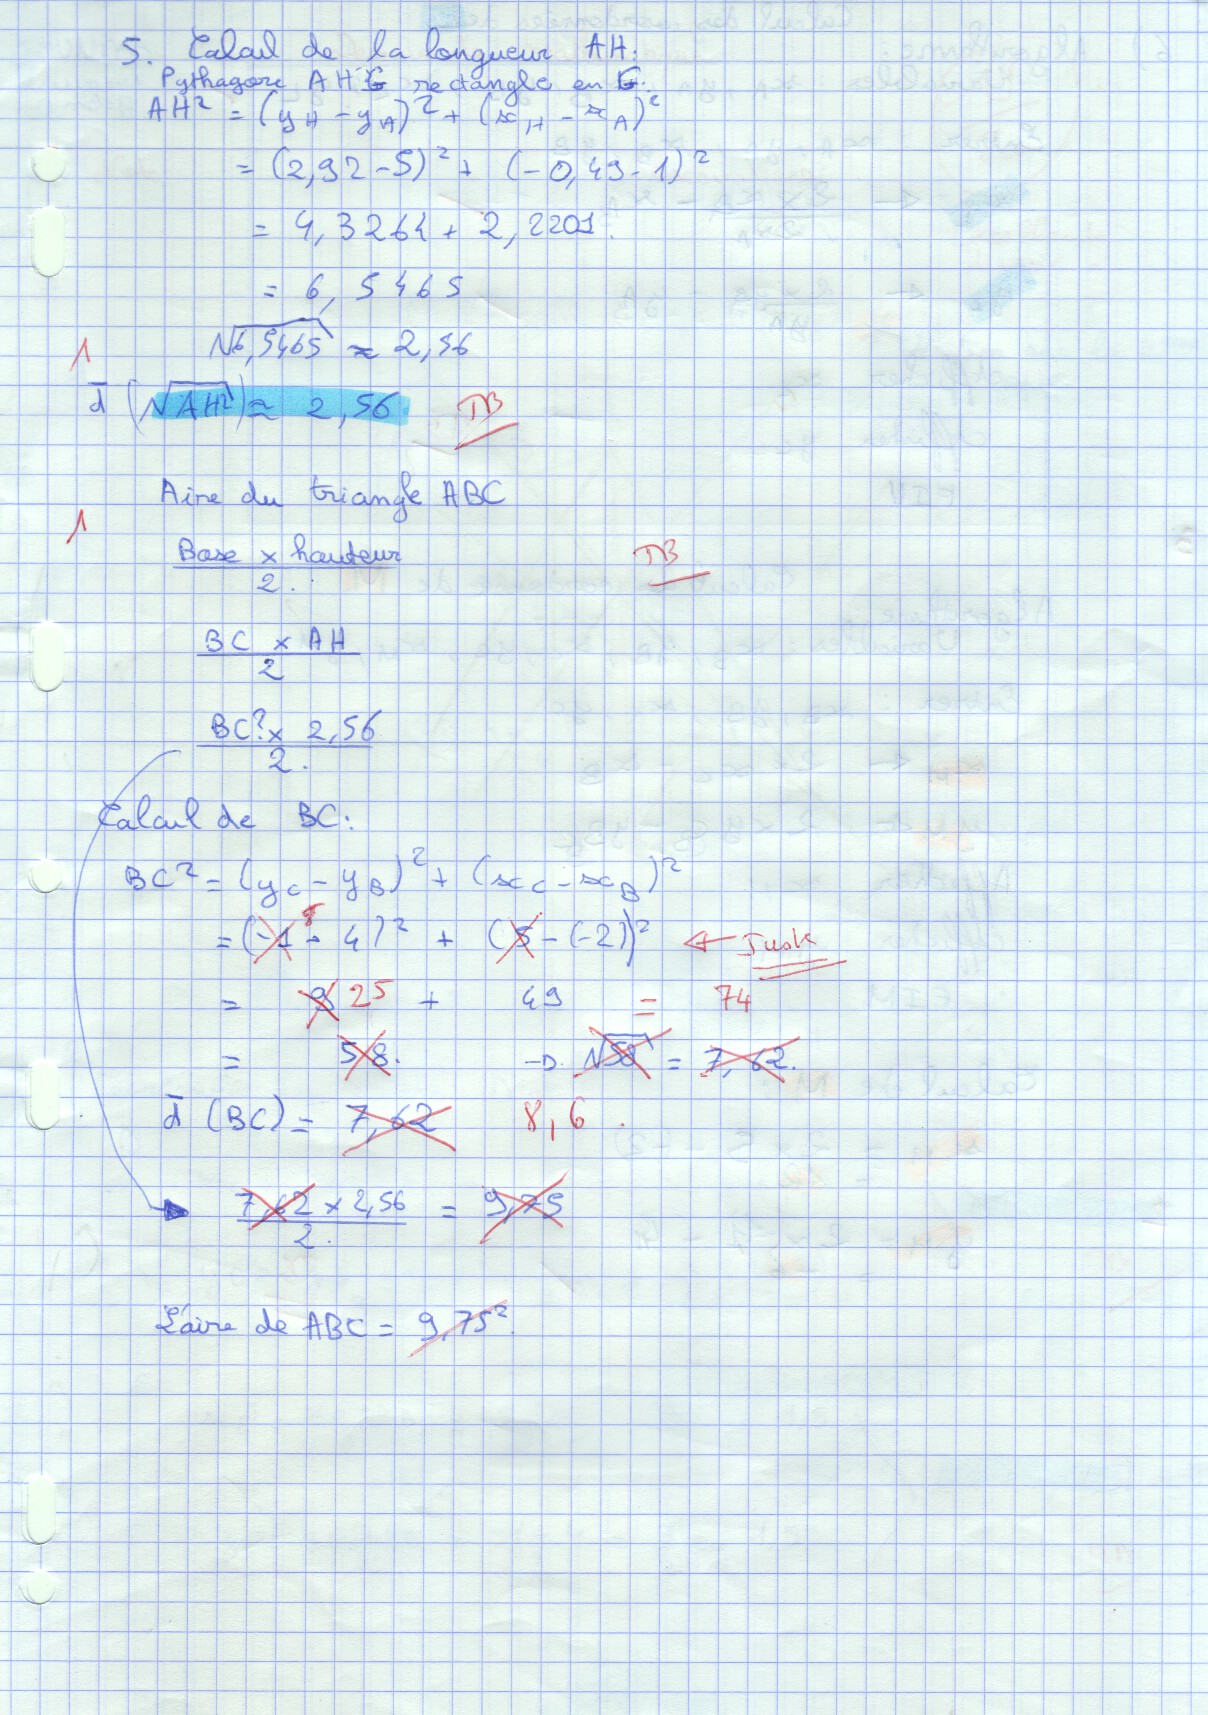 5. Calcul de la longueur AH:
Pythagore AHG rectangle en G.
AH² = (yH - yA)² + (xH - xA)²
= (2,92 - 5)² + (-0,49 - 1)²
= 4,3264 + 2,2201.
= 6,5465
1 √6,5465 ≈ 2,56
d (√AH²) ≈ 2,56. TB
Aire du triangle ABC
1
Base x hauteur / 2. TB
BC x AH / 2
BC? x 2,56 / 2.
Calcul de BC:
BC² = (yC - yB)² + (xC - xB)²
= (-1 - 4)² + (5 - (-2))² ← Juste
= 9 25 + 49 = 74
= 58. → √58 = 7,62.
d (BC) = 7,62 8,6.
7,62 x 2,56 / 2. = 9,75
L'aire de ABC = 9,75².